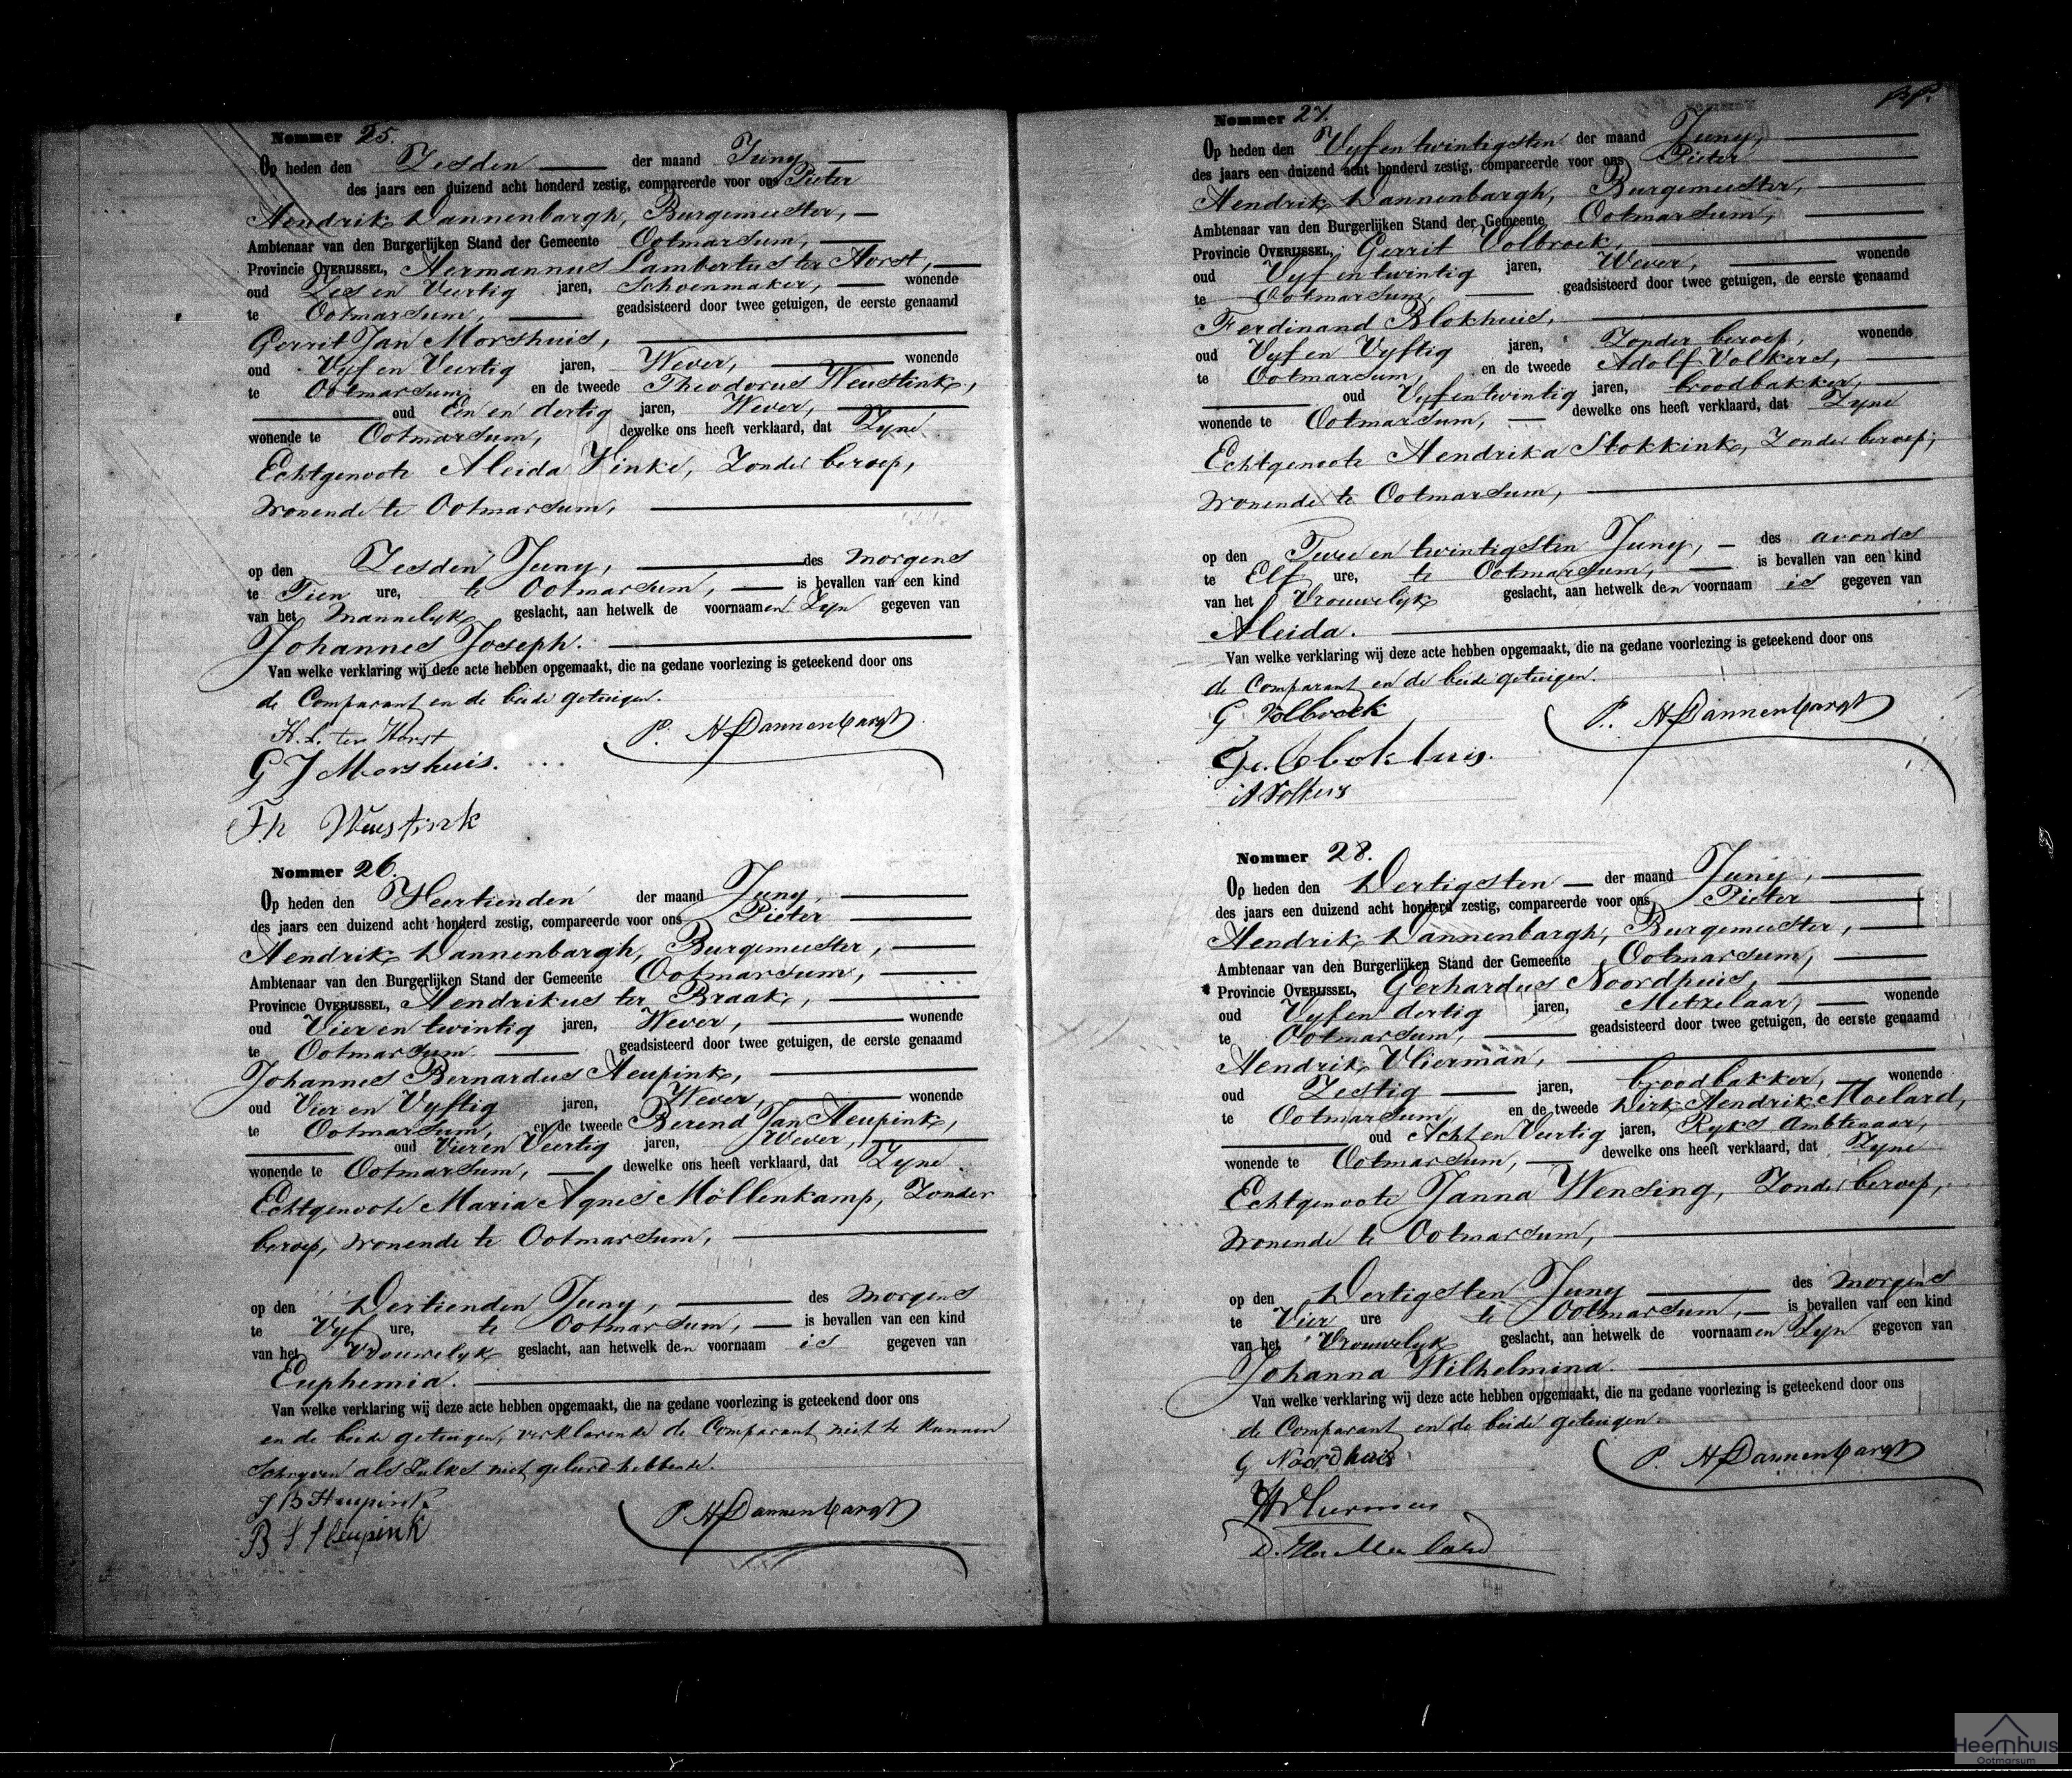 Nommer 25.
Op heden den Zesden der maand Juny
des jaars een duizend acht honderd zestig, compareerde voor ons Pieter
Hendrik Dannenbargh, Burgemeester,
Ambtenaar van den Burgerlijken Stand der Gemeente Ootmarsum,
Provincie Overijssel, Hermannus Lambertus ter Horst,
oud Zes en Veertig jaren, Schoenmaker, wonende
te Ootmarsum, geadsisteerd door twee getuigen, de eerste genaamd
Gerrit Jan Morshuis,
oud Vyf en Veertig jaren, Wever, wonende
te Ootmarsum, en de tweede Theodorus Weustink,
oud Een en dertig jaren, Wever,
wonende te Ootmarsum, dewelke ons heeft verklaard, dat Zyne
Echtgenoote Aleida Vinke, Zonder beroep,
Wonende te Ootmarsum,
op den Zesden Juny, des morgens
te Tien ure, te Ootmarsum, is bevallen van een kind
van het Mannelyk geslacht, aan hetwelk de voornaamen Zyn gegeven van
Johannes Joseph.
Van welke verklaring wij deze acte hebben opgemaakt, die na gedane voorlezing is geteekend door ons
de Comparant en de beide getuigen.
H. L. ter Horst
P. H Dannenbargh
G J Morshuis.
Th Weustink
Nommer 26.
Op heden den Veertienden der maand Juny,
des jaars een duizend acht honderd zestig, compareerde voor ons Pieter
Hendrik Dannenbargh, Burgemeester,
Ambtenaar van den Burgerlijken Stand der Gemeente Ootmarsum,
Provincie Overijssel, Hendrikus ter Braak,
oud Vier en twintig jaren, Wever, wonende
te Ootmarsum. geadsisteerd door twee getuigen, de eerste genaamd
Johannes Bernardus Heupink,
oud Vier en Vyftig jaren, Wever, wonende
te Ootmarsum, en de tweede Berend Jan Heupink,
oud Vier en Veertig jaren, Wever,
wonende te Ootmarsum, dewelke ons heeft verklaard, dat Zyne
Echtgenoote Maria Agnes Möllenkamp, Zonder
beroep, Wonende te Ootmarsum,
op den Dertienden Juny, des morgens
te Vyf ure, te Ootmarsum, is bevallen van een kind
van het Vrouwelyk geslacht, aan hetwelk den voornaam is gegeven van
Euphemia.
Van welke verklaring wij deze acte hebben opgemaakt, die na gedane voorlezing is geteekend door ons
en de beide getuigen, verklarende de Comparant niet te kunnen
Schryven als Zulks niet geleerd hebbende.
J B Heupink
P. H Dannenbargh
B J Heupink
Nommer 27.
Op heden den Vyf en twintigsten der maand Juny,
des jaars een duizend acht honderd zestig, compareerde voor ons Pieter
Hendrik Dannenbargh, Burgemeester,
Ambtenaar van den Burgerlijken Stand der Gemeente Ootmarsum,
Provincie Overijssel, Gerrit Volbroek,
oud Vyf en twintig jaren, Wever, wonende
te Ootmarsum, geadsisteerd door twee getuigen, de eerste genaamd
Ferdinand Blokhuis,
oud Vyf en Vyftig jaren, Zonder beroep, wonende
te Ootmarsum, en de tweede Adolf Volkers,
oud Vyf en twintig jaren, broodbakker,
wonende te Ootmarsum, dewelke ons heeft verklaard, dat Zyne
Echtgenoote Hendrika Stokkink, Zonder beroep,
Wonende te Ootmarsum,
op den Twee en twintigsten Juny, des avonds
te Elf ure, te Ootmarsum, is bevallen van een kind
van het Vrouwelyk geslacht, aan hetwelk den voornaam is gegeven van
Aleida.
Van welke verklaring wij deze acte hebben opgemaakt, die na gedane voorlezing is geteekend door ons
de Comparant en de beide getuigen.
G Volbroek
P. H Dannenbargh
A Volkers
Nommer 28.
Op heden den Dertigsten der maand Juny,
des jaars een duizend acht honderd zestig, compareerde voor ons Pieter
Hendrik Dannenbargh, Burgemeester,
Ambtenaar van den Burgerlijken Stand der Gemeente Ootmarsum,
Provincie Overijssel, Gerhardus Noordhuis,
oud Vyf en dertig jaren, Metzelaar, wonende
te Ootmarsum, geadsisteerd door twee getuigen, de eerste genaamd
Hendrik Vlierman,
oud Zestig jaren, broodbakker, wonende
te Ootmarsum, en de tweede Dirk Hendrik Moelard,
oud Acht en Veertig jaren, Ryks Ambtenaar,
wonende te Ootmarsum, dewelke ons heeft verklaard, dat Zyne
Echtgenoote Janna Wensing, Zonder beroep,
Wonende te Ootmarsum,
op den Dertigsten Juny des morgens
te Vier ure te Ootmarsum, is bevallen van een kind
van het Vrouwelyk geslacht, aan hetwelk de voornaamen Zyn gegeven van
Johanna Wilhelmina.
Van welke verklaring wij deze acte hebben opgemaakt, die na gedane voorlezing is geteekend door ons
de Comparant en de beide getuigen.
G Noordhuis
P. H Dannenbargh
H Vlierman
Heemhuis
Ootmarsum